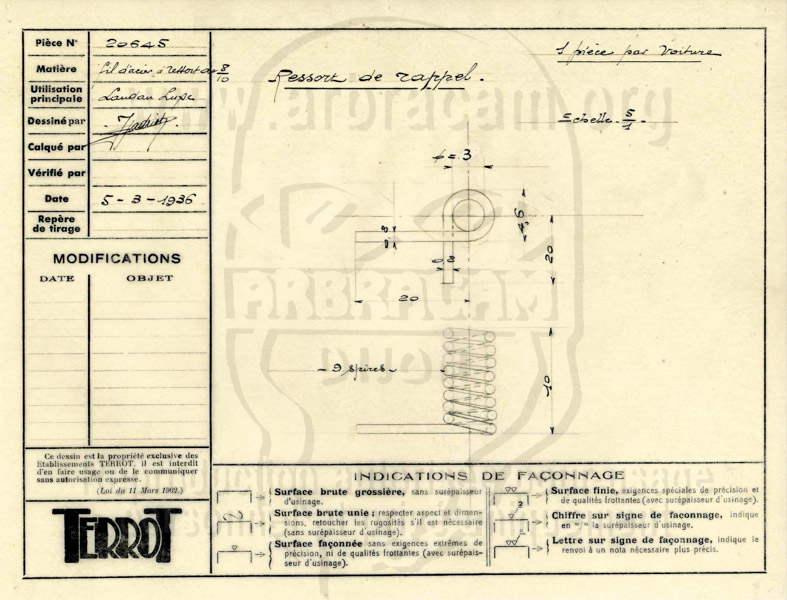 Pièce N° 20645
Matière Fil d'acier à ressort de 8/10
Utilisation
principale
Dessiné par
Calqué par
Vérifié par
Date 5-3-1936
Repère
de tirage
MODIFICATIONS
DATE OBJET
Ce dessin est la propriété exclusive des
Etablissements TERROT. il est interdit
d'en faire usage ou de le communiquer
sans autorisation expresse.
(Loi du 11 Mars 1902.)
TERROT
1 pièce par voiture
Ressort de rappel.
Echelle - 5/1 -
www.arbracam.org
φ = 3
4,6
20
0,8
0,8
20
ARBRACAM
DIJON
- 9 spires -
10
INDICATIONS DE FAÇONNAGE
Surface brute grossière, sans surépaisseur
d'usinage.
Surface brute unie ; respecter aspect et dimen-
sions, retoucher les rugosités s'il est nécessaire
(sans surépaisseur d'usinage).
Surface façonnée sans exigences extrêmes de
précision, ni de qualités frottantes (avec surépais-
seur d'usinage).
Surface finie, exigences spéciales de précision et
de qualités frottantes (avec surépaisseur d'usinage).
Chiffre sur signe de façonnage, indique
en m/m la surépaisseur d'usinage.
2
Lettre sur signe de façonnage, indique le
renvoi à un nota nécessaire plus précis.
a